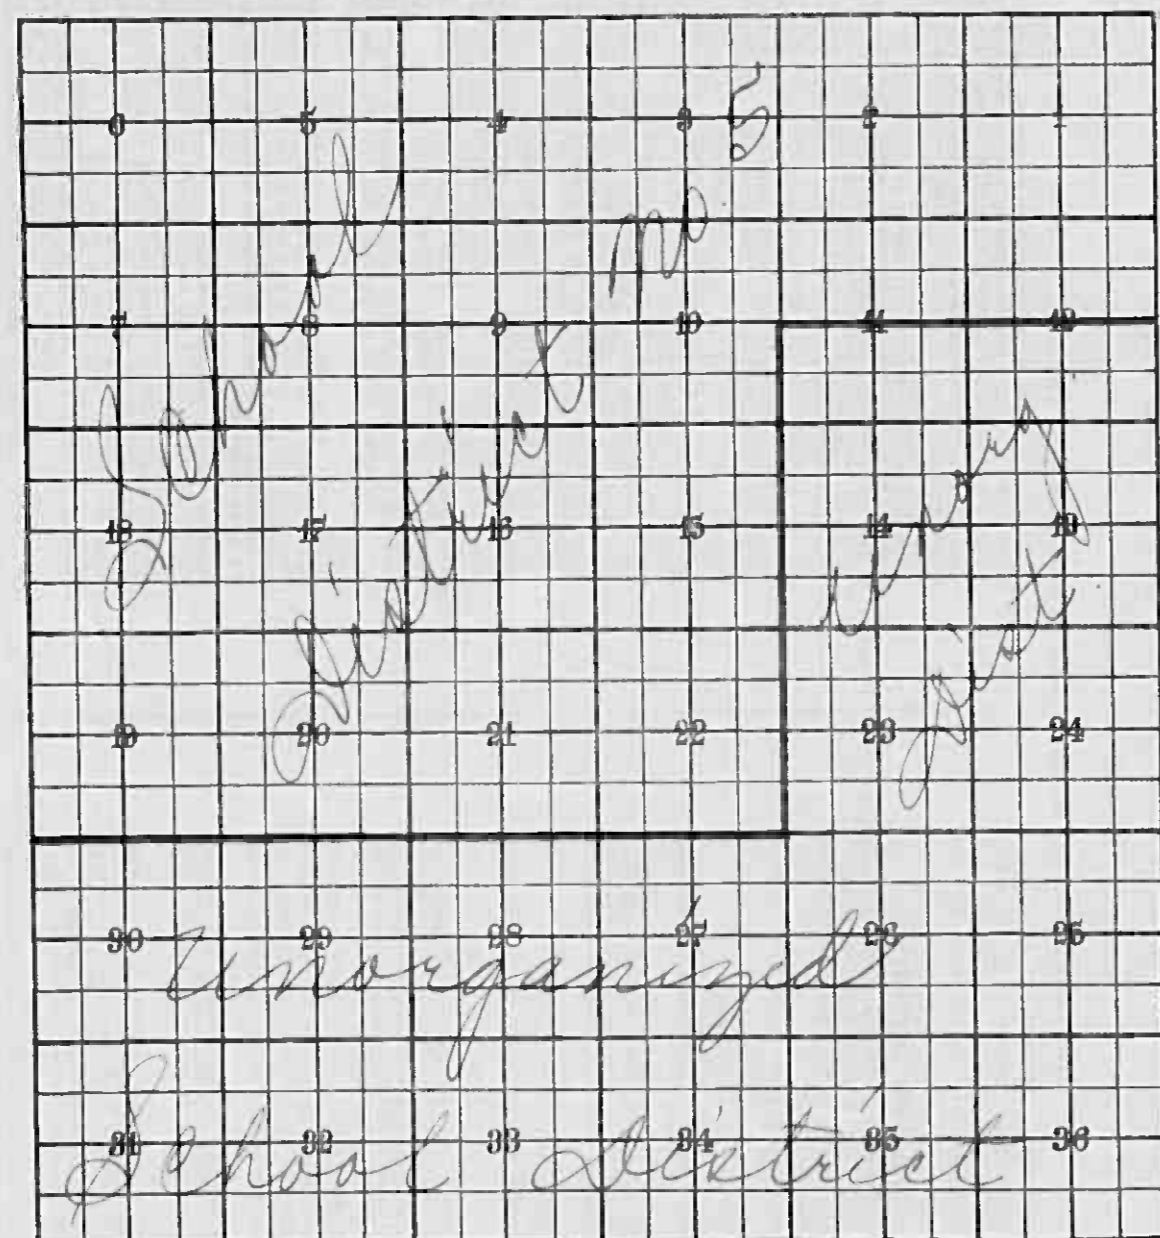 6 5 4 3 2 1
7 8 9 10 11 12
18 17 16 15 14 13
19 20 21 22 23 24
30 29 28 27 26 25
31 32 33 34 35 36
School
District no 85
Dist
Unorganized
School District